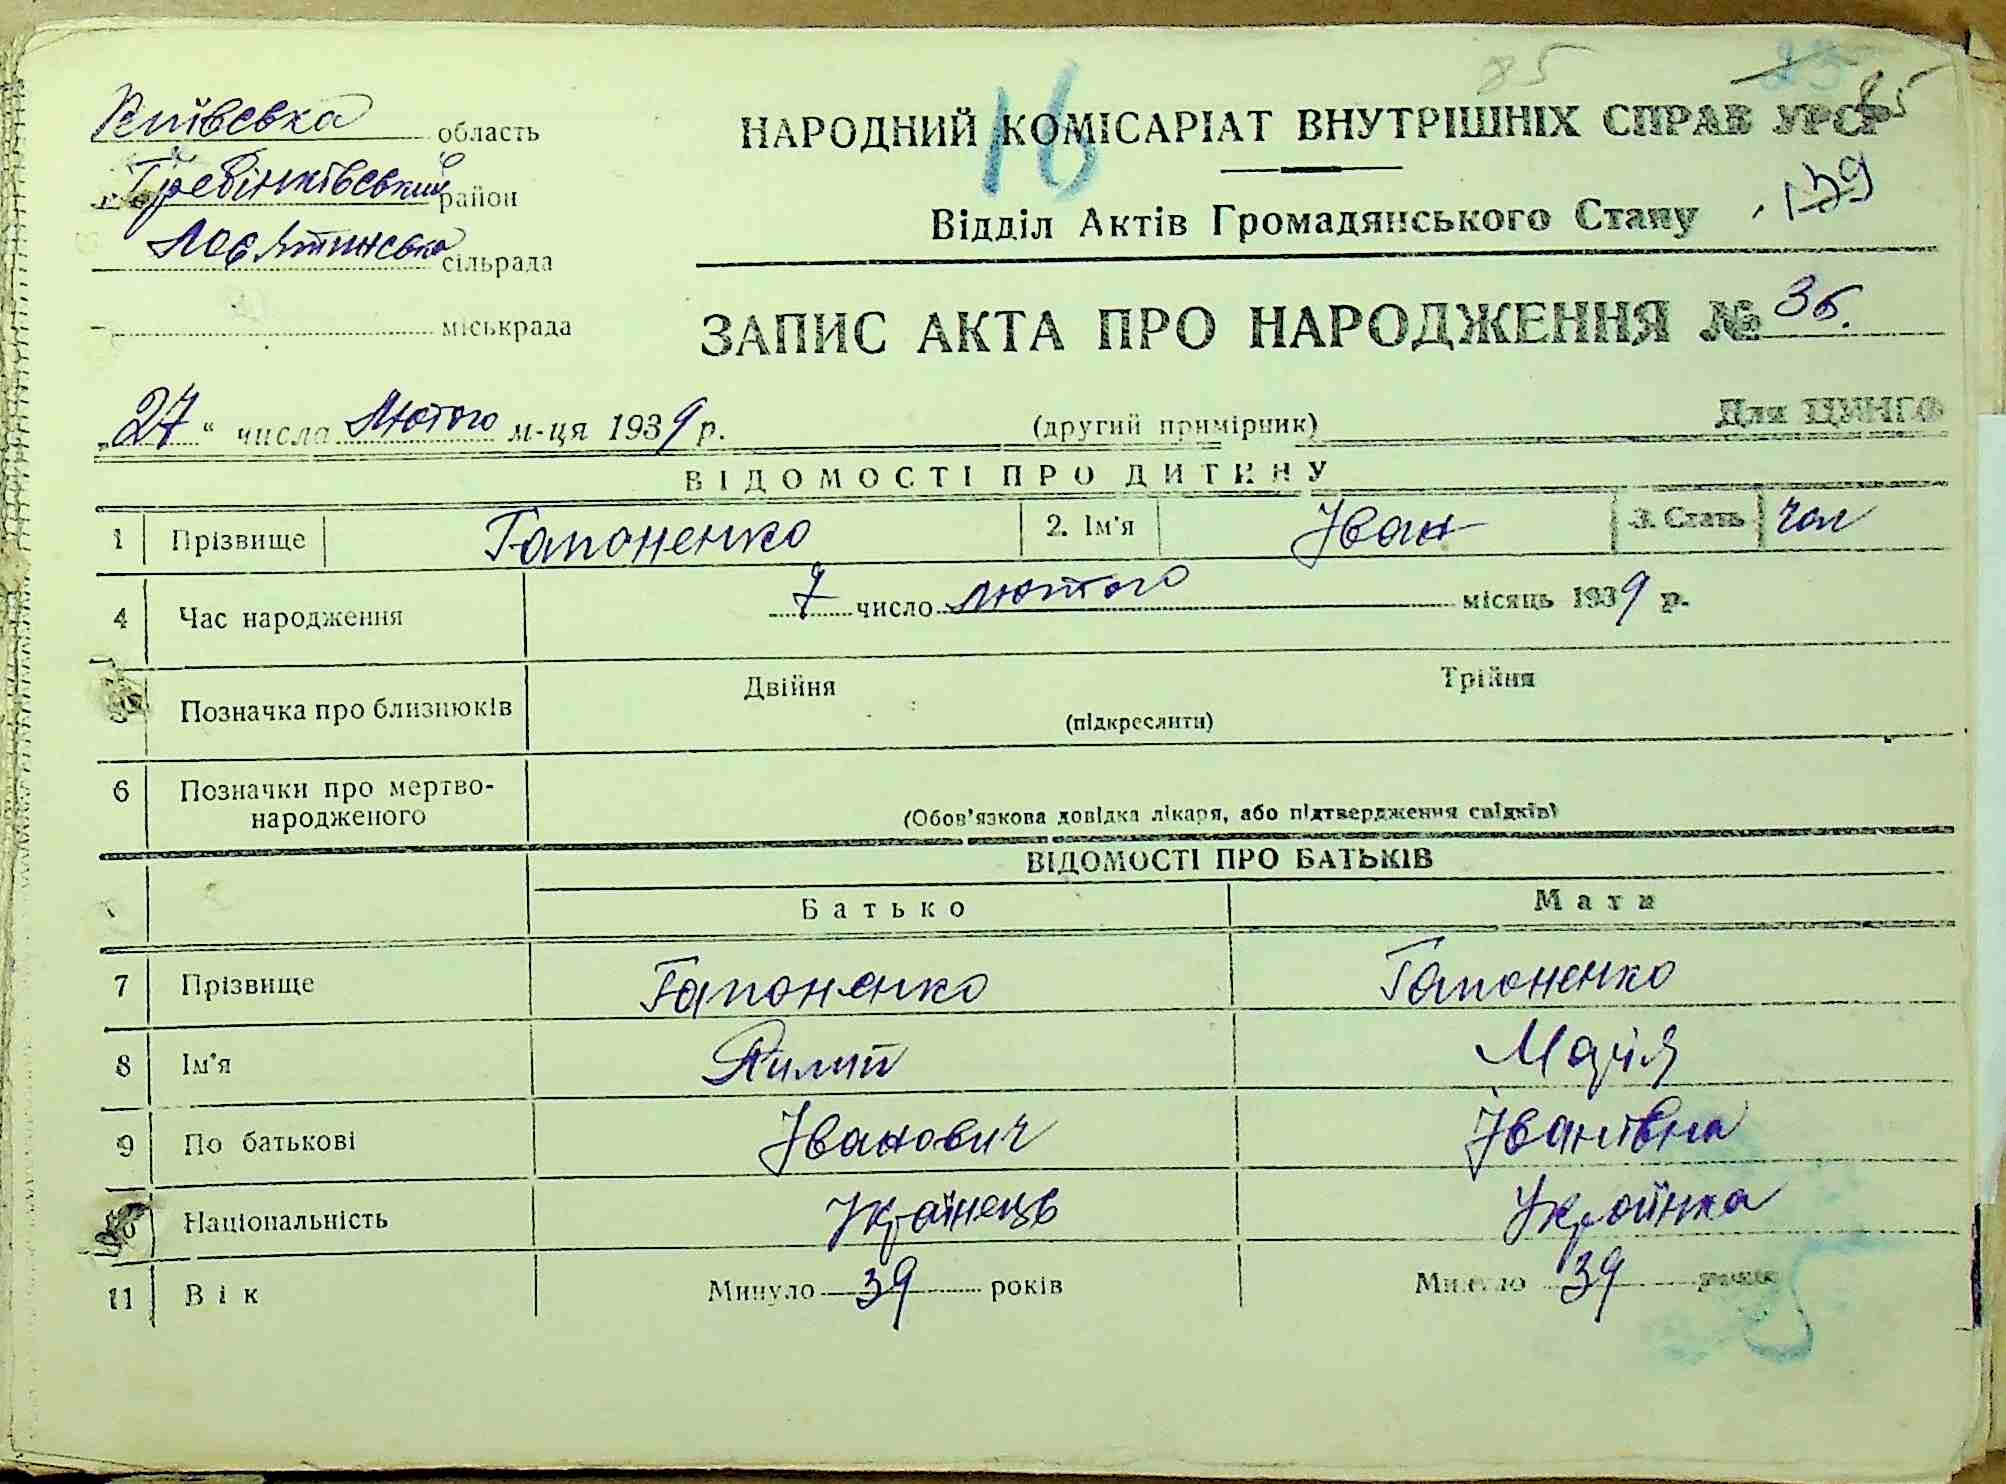 85
85
85
16
Київська область
НАРОДНИЙ КОМІСАРІАТ ВНУТРІШНІХ СПРАВ УРСР
Гребінківський район
139
Відділ Актів Громадянського Стану
сільрада
міськрада
ЗАПИС АКТА ПРО НАРОДЖЕННЯ № 36.
„27“ числа Лютого м-ця 1939 р.
(другий примірник)
Для ЦУНГО
ВІДОМОСТІ ПРО ДИТИНУ
1 Прізвище Гапоненко 2. Ім'я Іван 3. Стать чол
4 Час народження 7 число лютого місяць 1939 р.
Позначка про близнюків Двійня Трійня
(підкреслити)
6 Позначки про мертво-
народженого
(Обов'язкова довідка лікаря, або підтвердження свідків)
ВІДОМОСТІ ПРО БАТЬКІВ
Батько Мати
7 Прізвище Гапоненко Гапоненко
8 Ім'я Пилип Марія
9 По батькові Іванович Іванівна
Національність Українець Українка
11 Вік Минуло 39 років Минуло 39 років